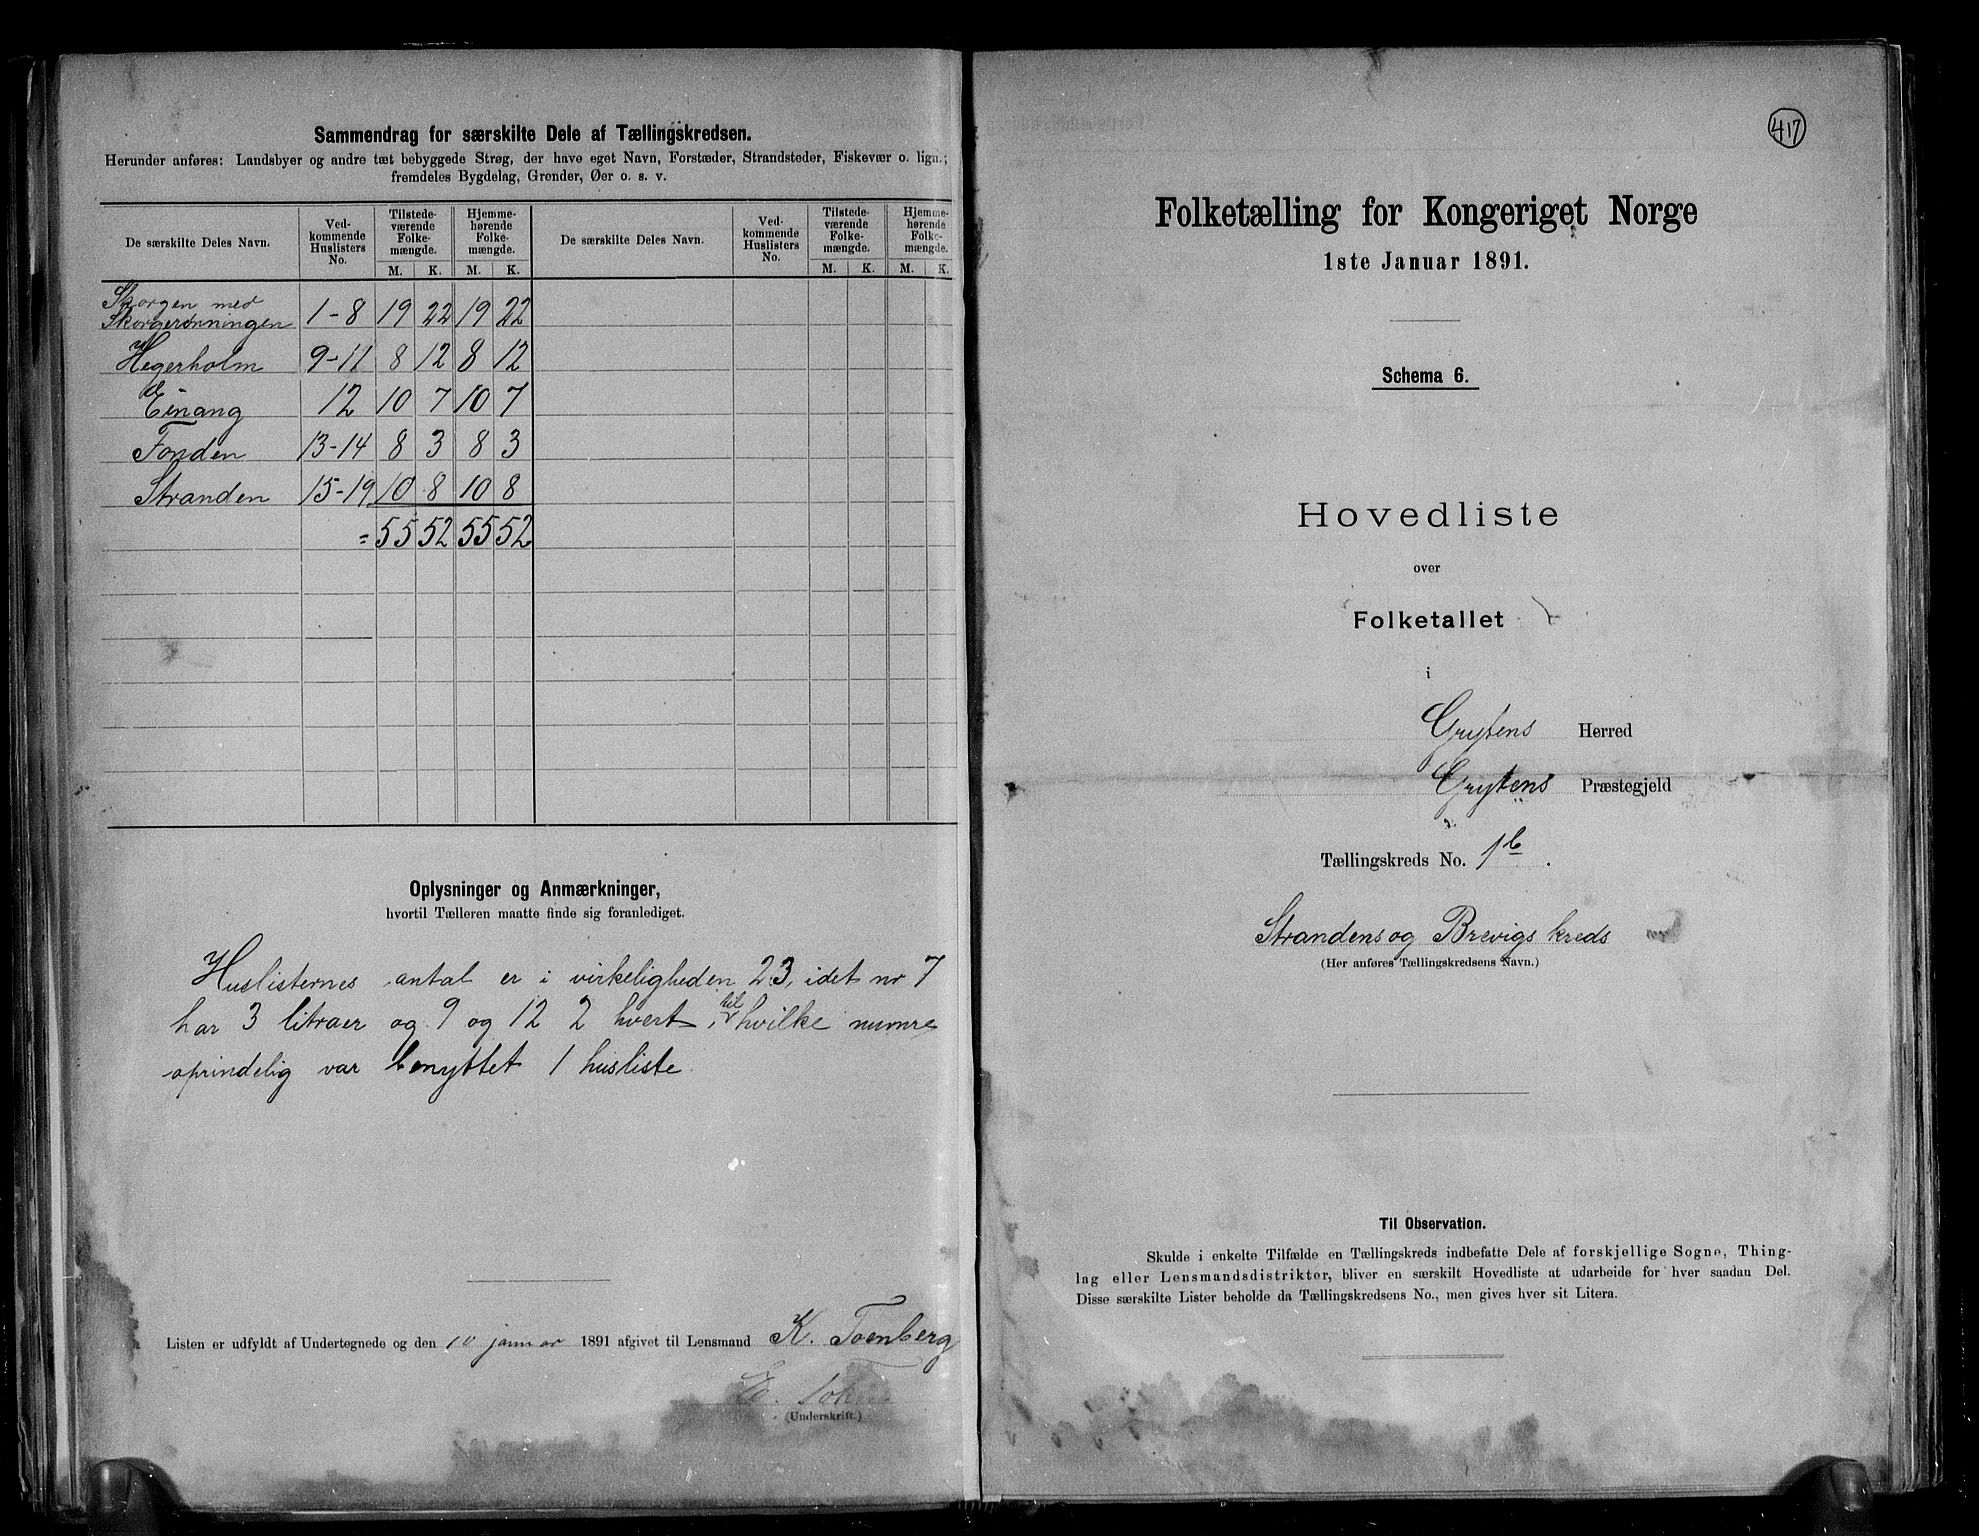 Sammendrag for særskilte Dele af Tællingskredsen.
Herunder anføres: Landsbyer og andre tæt bebyggede Strøg, der have eget Navn, Forstæder, Strandsteder, Fiskevær o. lign.;
fremdeles Bygdelag, Grender, Øer o. s. v.
De særskilte Deles Navn. Ved-kommende Huslisters No. Tilstede-værende Folke-mængde. Hjemme-hørende Folke-mængde. De særskilte Deles Navn. Ved-kommende Huslisters No. Tilstede-værende Folke-mængde. Hjemme-hørende Folke-mængde.
M. K. M. K. M. K. M. K.
Skorgen med
Skorgerønningen 1-8 19 22 19 22
Hegerholm 9-11 8 12 8 12
Einang 12 10 7 10 7
Fonden 13-14 8 3 8 3
Stranden 15-19 10 8 10 8
= 55 52 55 52
Oplysninger og Anmærkninger,
hvortil Tælleren maatte finde sig foranlediget.
Huslisternes antal er i virkeligheden 23, idet nr 7
har 3 litraer og 9 og 12 2 hvert, til hvilke numre
oprindelig var benyttet 1 husliste.
Listen er udfyldt af Undertegnede og den 10 januar 1891 afgivet til Lensmand K. Toenberg
E.
(Underskrift.)
417
Folketælling for Kongeriget Norge
1ste Januar 1891.
Schema 6.
Hovedliste
over
Folketallet
i
Grytens Herred
Grytens Præstegjeld
Tællingskreds No. 1b.
Strandens og Brevigs kreds
(Her anføres Tællingskredsens Navn.)
Til Observation.
Skulde i enkelte Tilfælde en Tællingskreds indbefatte Dele af forskjellige Sogne, Thing-
lag eller Lensmandsdistrikter, bliver en særskilt Hovedliste at udarbeide for hver saadan Del.
Disse særskilte Lister beholde da Tællingskredsens No., men gives hver sit Litera.